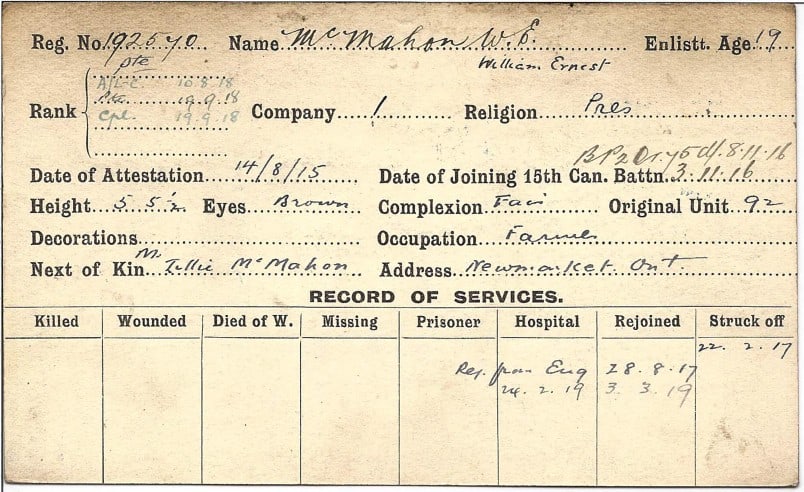 Reg. No. 192570 Name McMahon W. E. Enlistt. Age 19
William Ernest
Pte
A/L-C. 10.8.18
Rank Pte. 19.9.18 Company 1 Religion Pres
Cpl. 19.9.18
8.11.16
Date of Attestation 14/8/15 Date of Joining 15th Can. Battn. 3.11.16
Height 5 5½ Eyes Brown Complexion Fair Original Unit 92
Decorations Occupation Farmer
Next of Kin Tillie McMahon Address Newmarket. Ont.
RECORD OF SERVICES.
Killed Wounded Died of W. Missing Prisoner Hospital Rejoined Struck off
22. 2. 17
Rej. from Eng 28. 8. 17
24. 2. 19 3. 3. 19